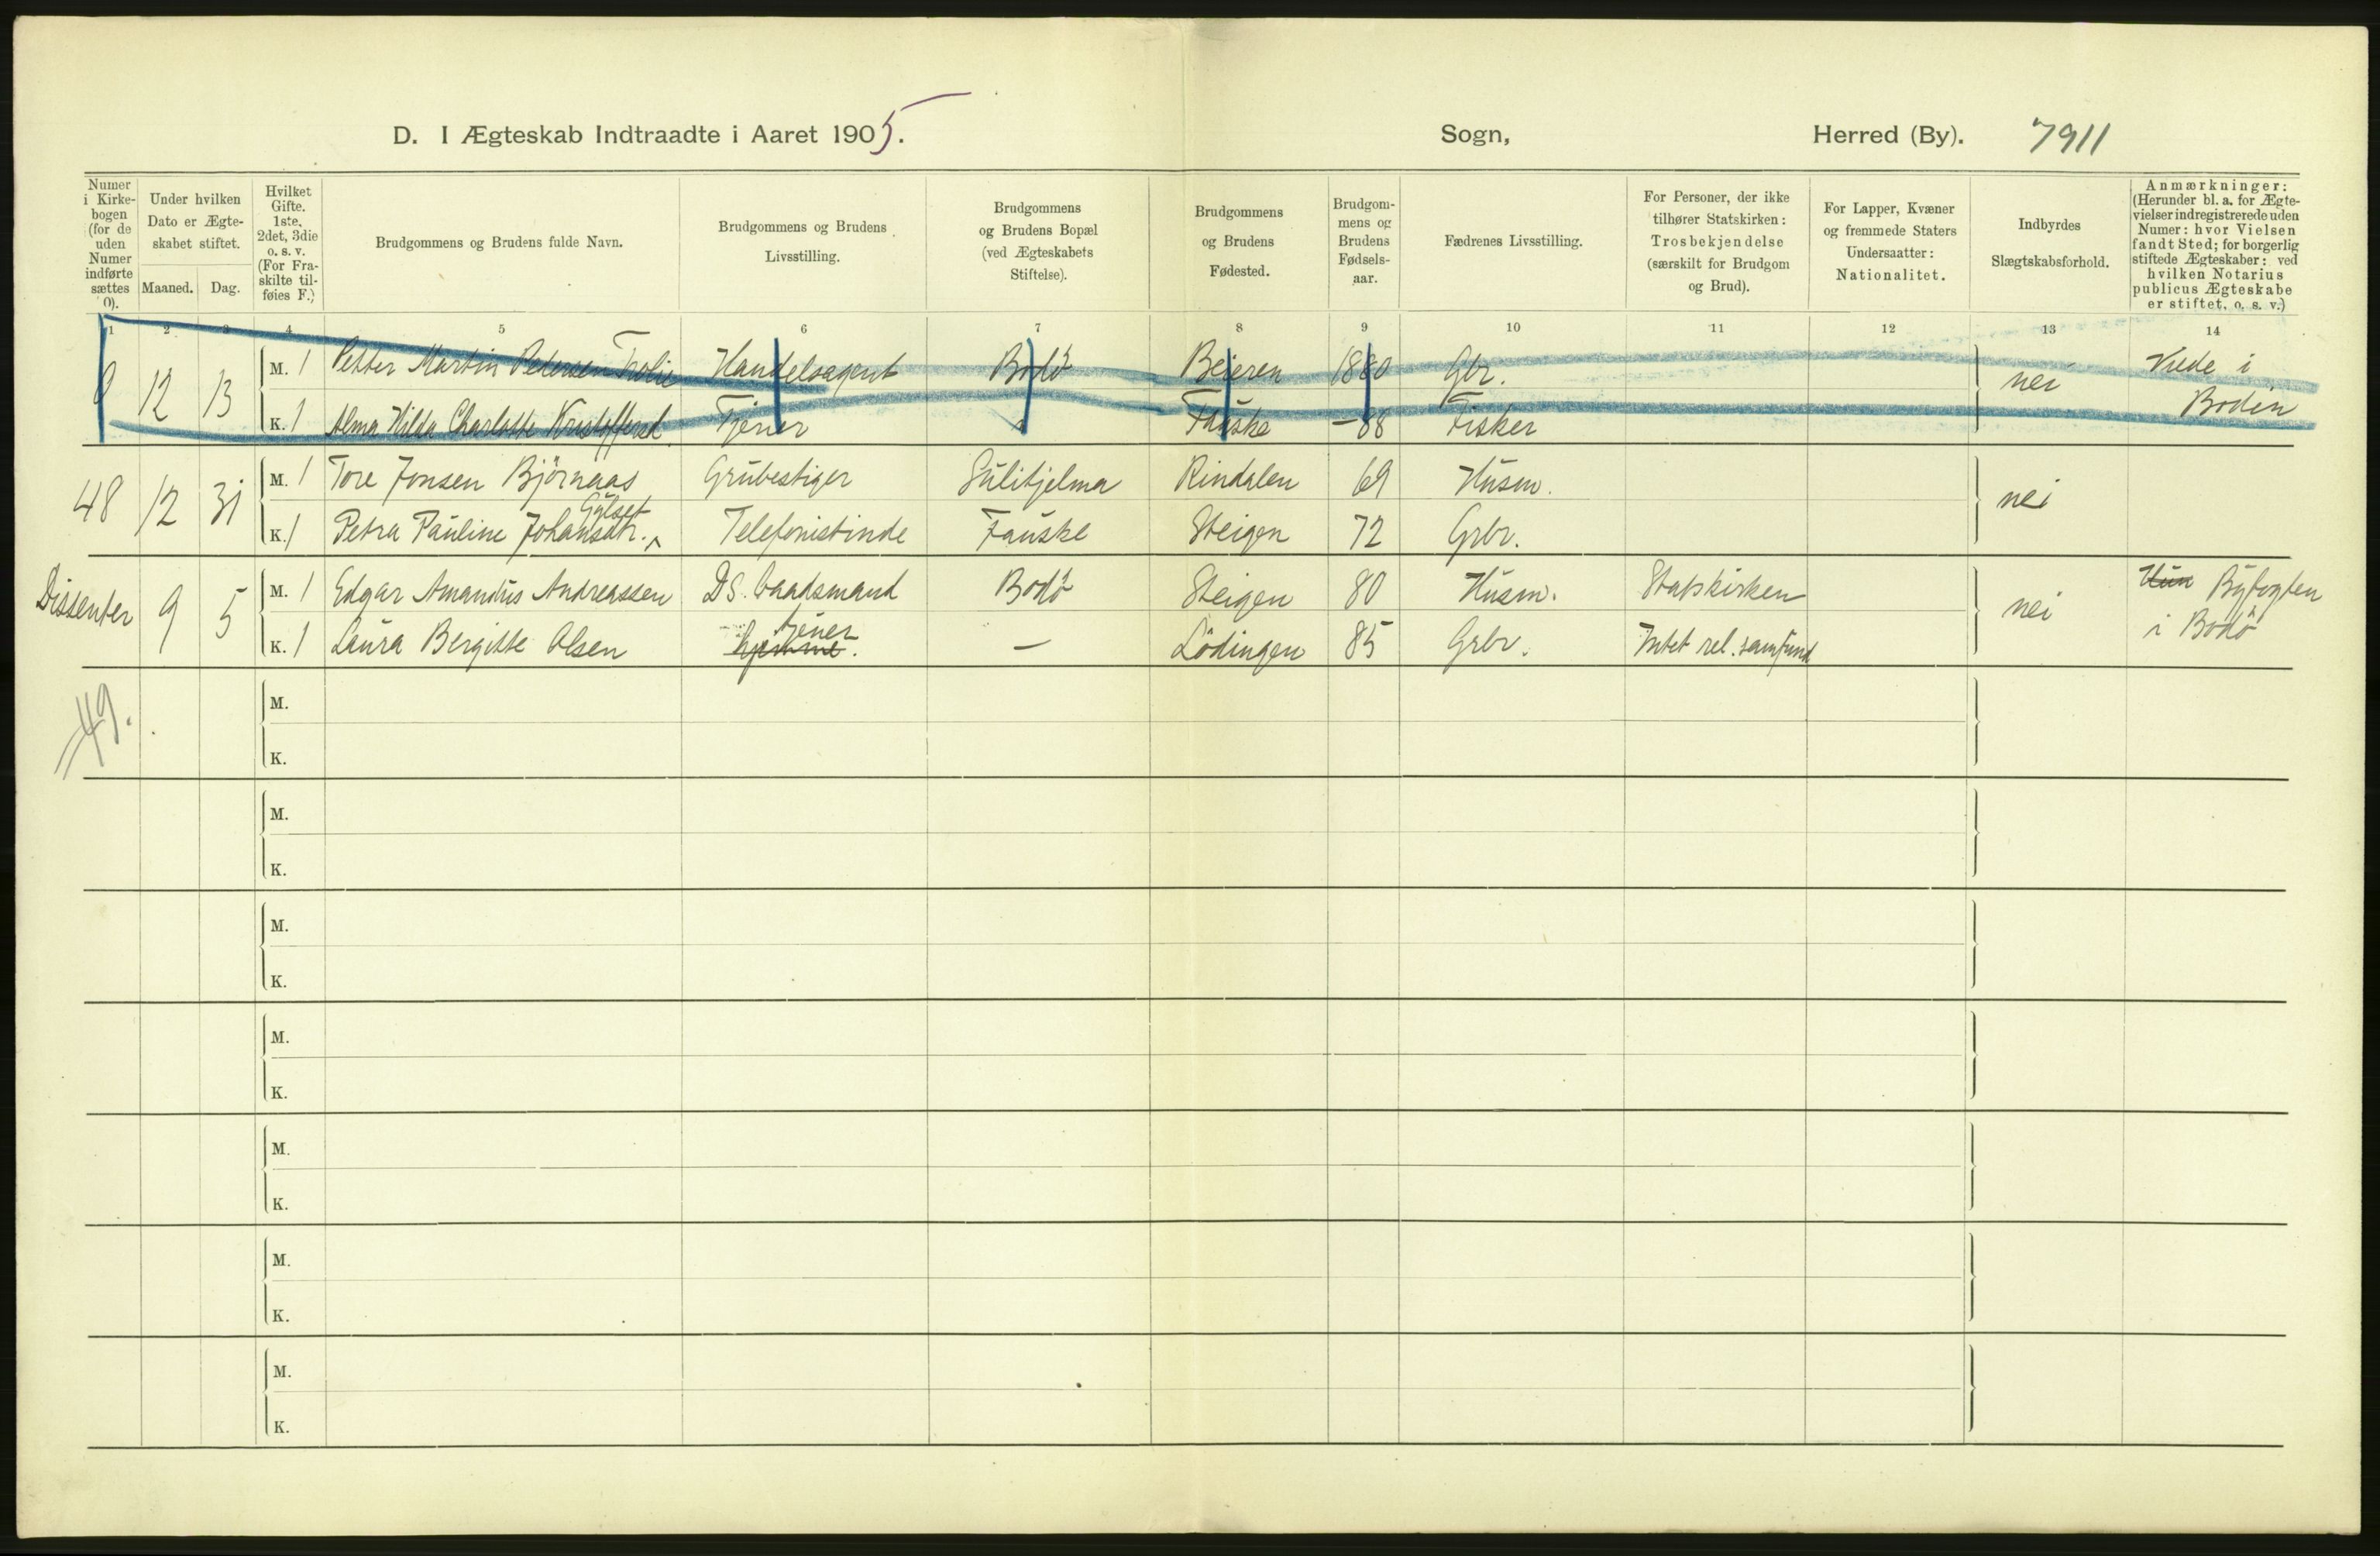 D. I Ægteskab Indtraadte i Aaret 1905. Sogn, Herred (By). 7911
Numer i Kirkebogen (for de uden Numer indførte sættes 0).
Under hvilken Dato er Ægteskabet stiftet.
Maaned. Dag.
Hvilket Gifte. 1ste, 2det, 3die o. s. v. (For Fraskilte tilføies F.)
Brudgommens og Brudens fulde Navn.
Brudgommens og Brudens Livsstilling.
Brudgommens og Brudens Bopæl (ved Ægteskabets Stiftelse).
Brudgommens og Brudens Fødested.
Brudgommens og Brudens Fødselsaar.
Fædrenes Livsstilling.
For Personer, der ikke tilhører Statskirken: Trosbekjendelse (særskilt for Brudgom og Brud).
For Lapper, Kvæner og fremmede Staters Undersaatter: Nationalitet.
Indbyrdes Slægtskabsforhold.
Anmærkninger: (Herunder bl. a. for Ægtevielser indregistrerede uden Numer: hvor Vielsen fandt Sted; for borgerlig stiftede Ægteskaber: ved hvilken Notarius publicus Ægteskabe er stiftet, o. s. v.)
1 2 3 4 5 6 7 8 9 10 11 12 13 14
0 12 13 M. 1 Petter Martin Pedersen Handelsagent Bodö Beieren 1880 Gbr. nei Viede i Bodin
K. 1 Alma Hilda Charlotte Kristoffersd. Tjener Fauske -88 Fisker
48 12 31 M. 1 Tore Jonsen Björnaas Grubestiger Sulitjelma Rindalen 69 Husm. nei
K. 1 Petra Pauline Johansdtr. Gylset Telefonistinde Fauske Steigen 72 Grbr.
Dissenter 9 5 M. 1 Edgar Amandus Andreassen DS. baadsmand Bodö Steigen 80 Husm. Statskirken nei Hun Byfogten i Bodö
K. 1 Laura Bergitte Olsen hjemme. tjener — Lödingen 85 Grbr. Intet rel. samfund
49.
M.
K.
M.
K.
M.
K.
M.
K.
M.
K.
M.
K.
M.
K.